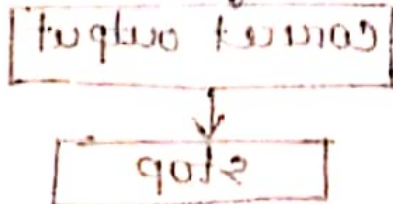 correct output
stop